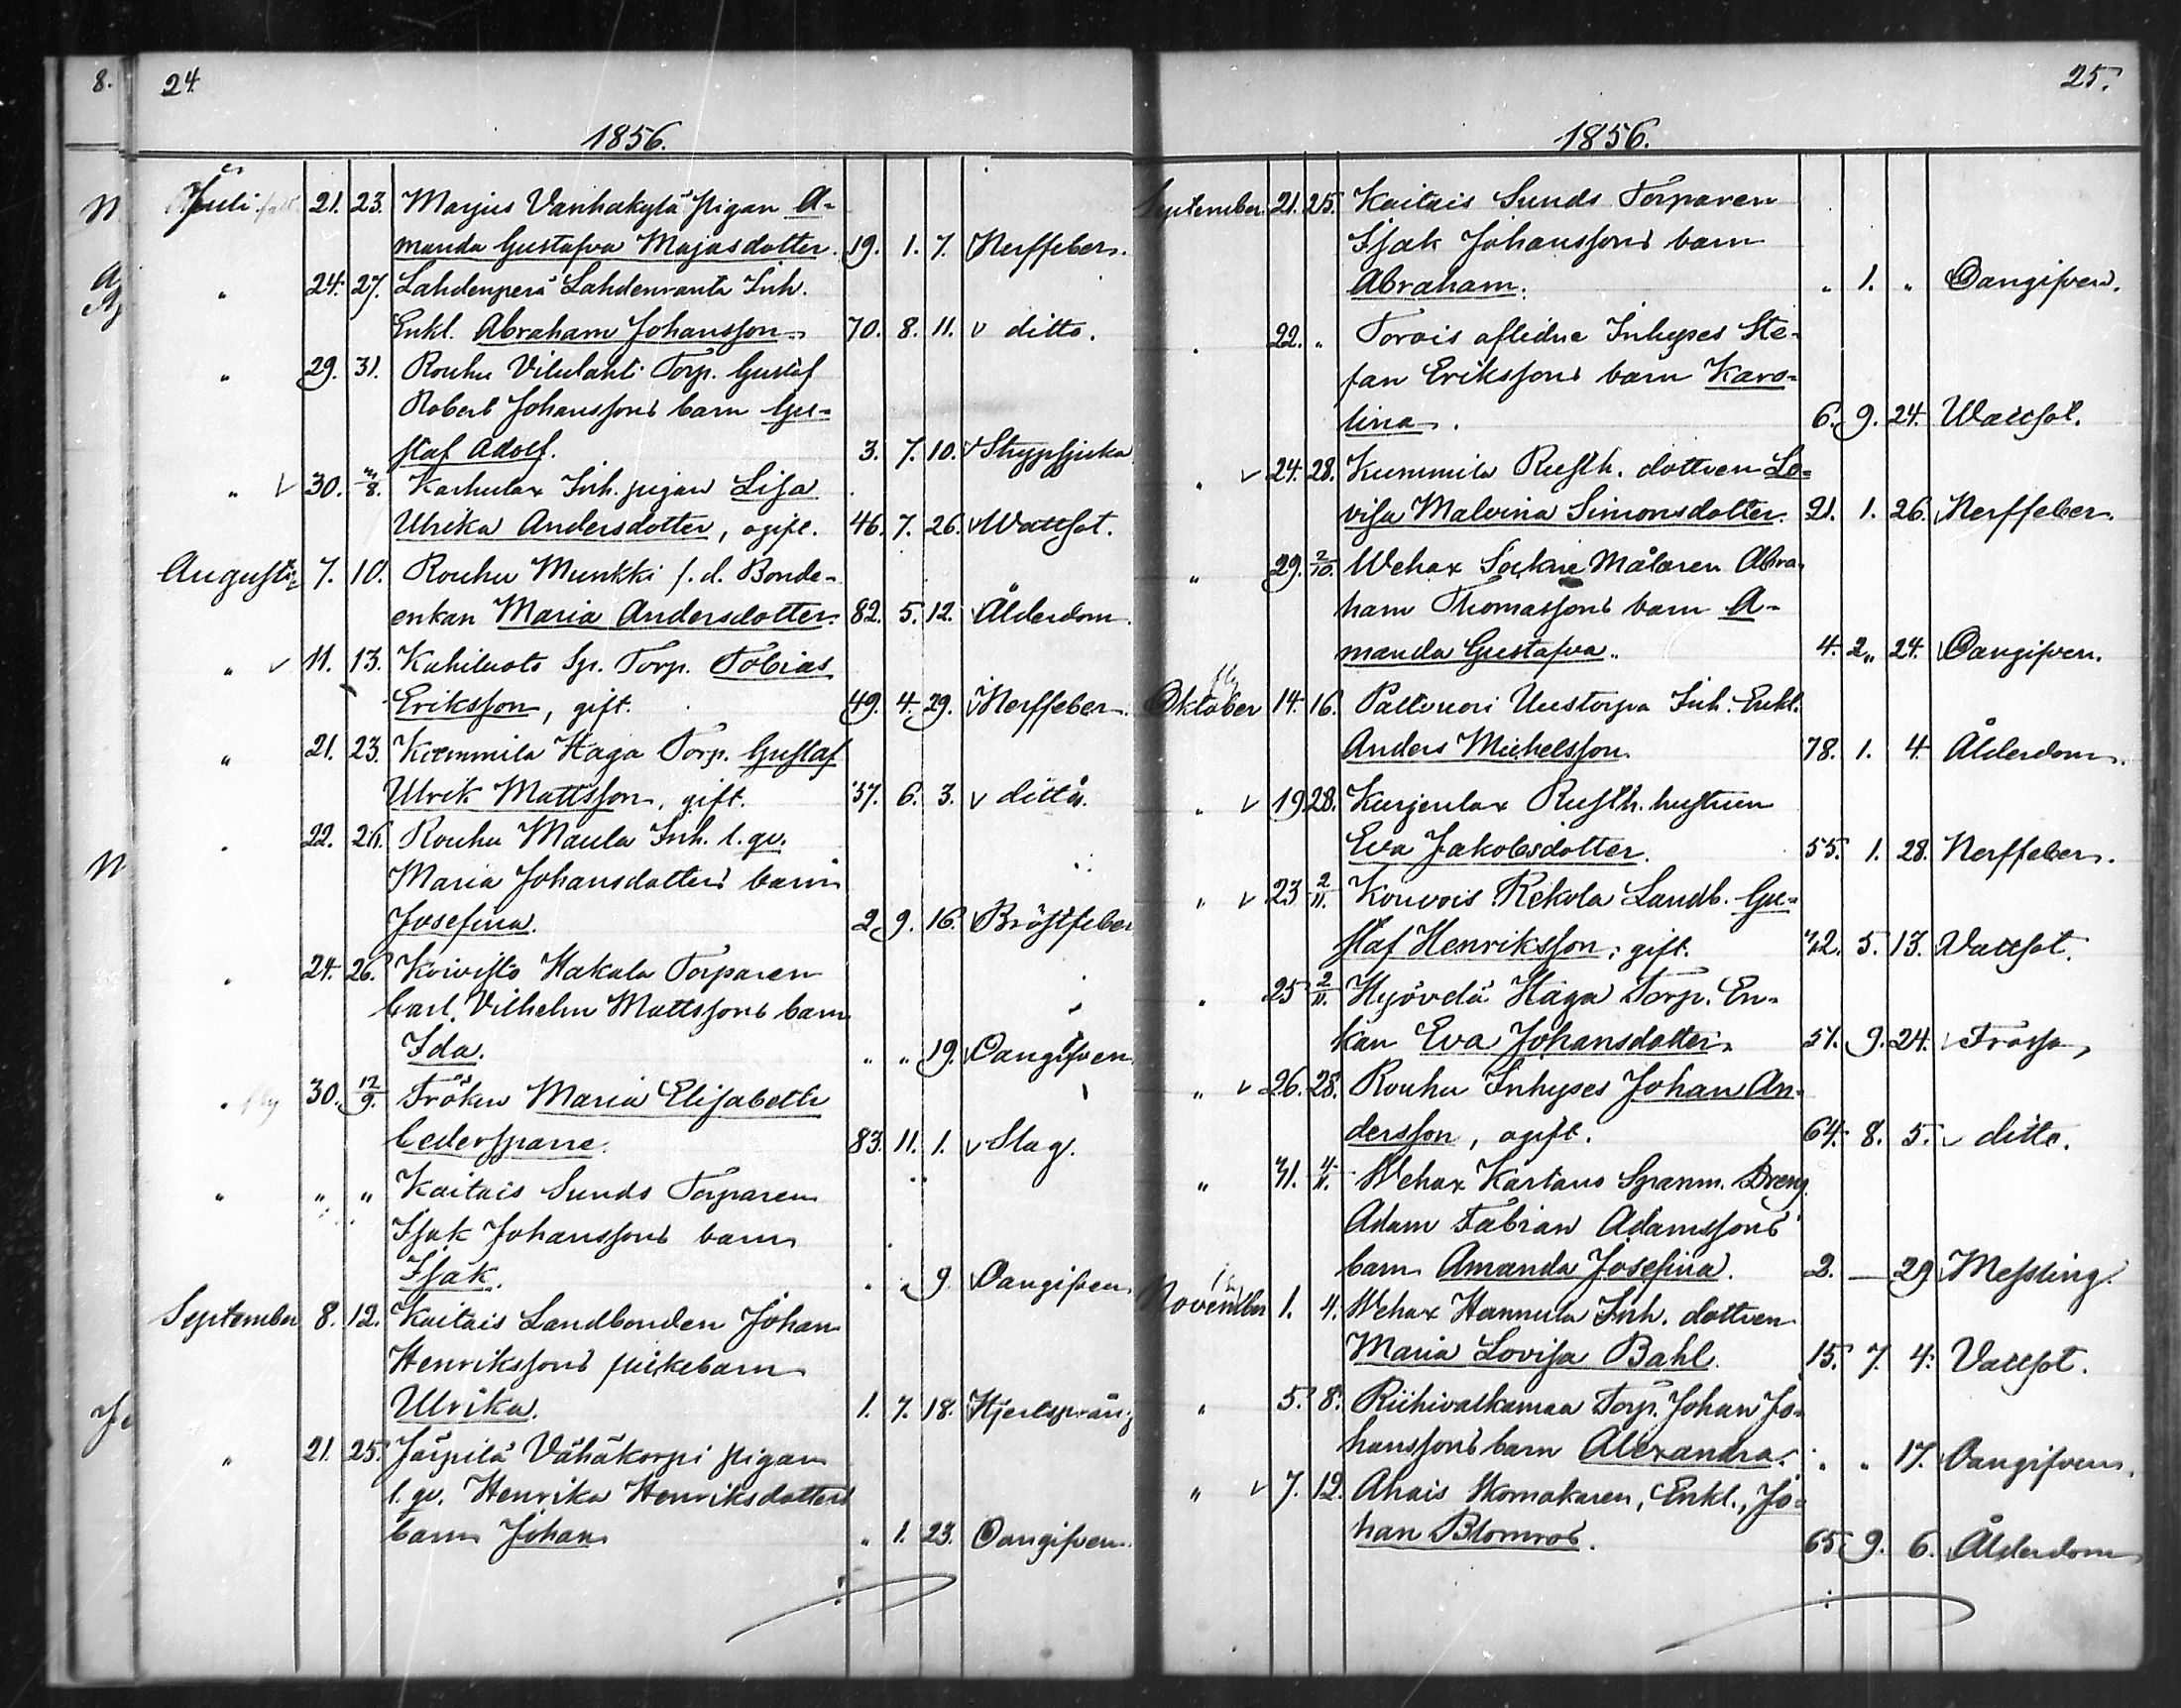 8.
24
1856.
Juli 21. 23. Marjus Vanhakylä pigan A-
manda Gustafva Majasdotter. 19. 1. 7. Nerffeber.
" 24. 27. Lahdenperä Lahdenranta Inh.
Enkl. Abraham Johansson 70. 8. 11. v ditto.
" 29. 31. Rouhu Vilulahti Torp. Gustaf
Robert Johanssons barn Gu-
staf Adolf. 3. 7. 10. v Strypsjuka
" v 30. 3/8. Karhula Inh. pigan Lisa
Ulrika Andersdotter, ogift. 46. 7. 26. v Wattsot.
Augusti 7. 10. Rouhu Munkki f. d. Bonde-
enkan Maria Andersdotter. 82. 5. 12. v Ålderdom.
" v 11. 13. Kahiluoto Sp. Torp. Tobias
Eriksson, gift. 49. 4. 29. v Nerffeber.
" 21. 23. Kummila Haga Torp. Gustaf
Ulrik Mattsson, gift. 37. 6. 3. v ditto.
" 22. 26. Rouhu Maula Inh. l. qv.
Maria Johansdotters barn
Josefina. 2. 9. 16. v Bröstfeber
" 24. 26. Koivisto Hakala Torparen
Carl Vilhelm Mattssons barn
Ida. " " 19. v Oangifven.
" 30. 12/9. Fröken Maria Elisabeth
Cedersparre. 83. 11. 1. v Slag.
" " " Kaitais Sunds Torparen
Isak Johanssons barn
Isak. " " 9. v Oangifven.
September 8. 12. Kaitais Landbonden Johan
Henrikssons pickebarn
Ulrika. 1. 7. 18. Hjertspräng
" 21. 25. Järpilä Vähäkorpi pigan
l. qv. Henrika Henriksdotters
barn Johan " 1. 23. Oangifven.
25.
1856.
September 21. 25. Kaitais Sunds Torparen
Isak Johanssons barn
Abraham. " 1. " Oangifven.
" 22. " Torois aflidne Inhyses Ste-
fan Erikssons barn Karo-
lina. 6. 9. 24. Wattsot.
" v 24. 28. Kummila Rusth. dottren Lo-
visa Malvina Simonsdotter. 21. 1. 26. Nerffeber.
" 29. 2/10. Wehax Sockne Målaren Abra-
ham Thomassons barn A-
manda Gustafva. 4. 2. 24. v Oangifven.
Oktober 14. 16. Paltvuori Uustorpa Inh. Enkl.
Anders Michelsson. 78. 1. 4. Ålderdom.
" v 19. 28. Kurjenlax Rusth. hustrun
Eva Jakobsdotter. 55. 1. 28. Nerffeber.
" v 23. 2/11. Kouvois Rekola Landb. Gu-
staf Henriksson, gift. 32. 5. 13. Vattsot.
" 25. 2/11. Hyövelä Haga Torp. En-
kan Eva Johansdotter. 51. 9. 24. Frossa,
" v 26. 28. Rouhu Inhyses Johan An-
dersson, ogift. 64. 8. 5. v ditto.
" 31. 4/11. Wehax Kartano Spanm. Dreng
Adam Fabian Adamssons
barn Amanda Josefina. 2. — 29. Messling.
November 1. 4. Wehax Hannula Inh. dottren
Maria Lovisa Bahl. 15. 7. 4. Vattsot.
" 5. 8. Riihivalkamaa Torp. Johan Jo-
hanssons barn Alexandra. " " 17. Oangifven.
" v 7. 12. Ahais Skomakaren, Enkl., Jo-
han Blomros. 65. 9. 6. Ålderdom